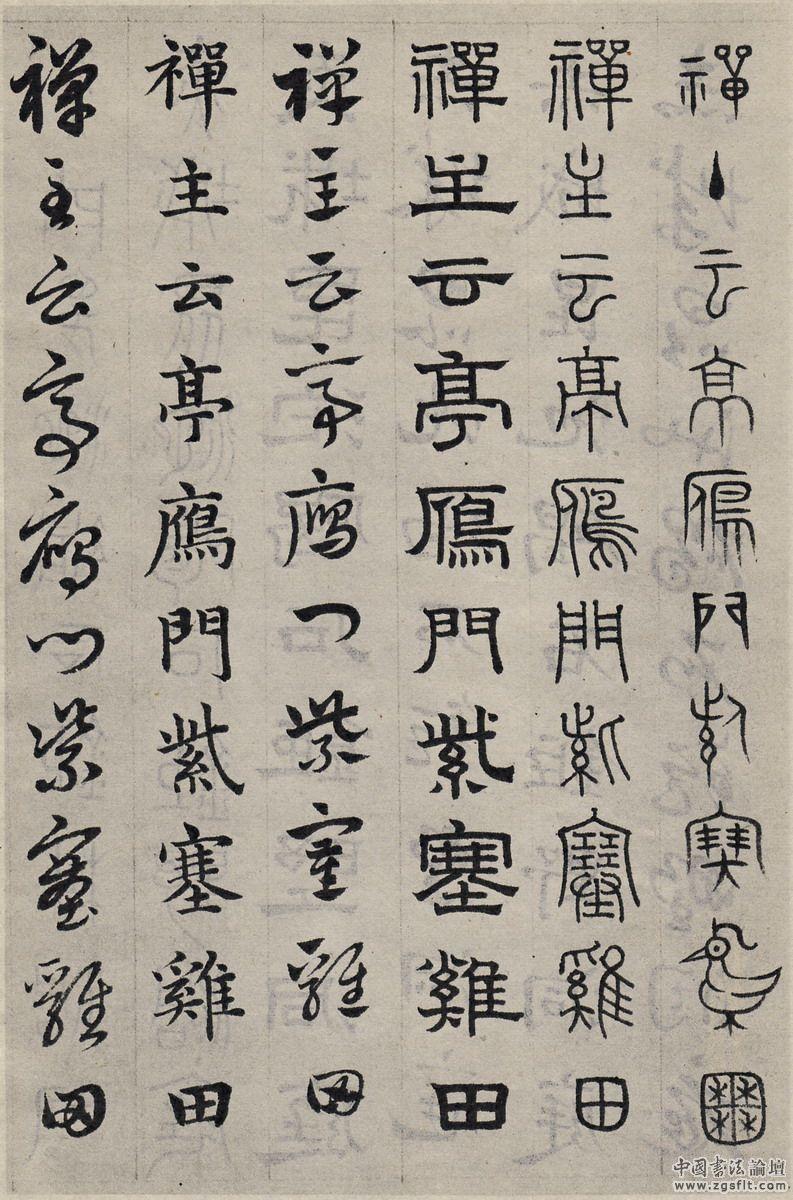 禪主云亭雁門紫塞雞田
禪主云亭雁門紫塞雞田
禪主云亭鴈門紫塞雞田
禪主云亭鴈門紫塞雞田
禪主云亭鴈門紫塞雞田
禪主云亭鴈門紫塞雞田
中國書法論壇
www.zgsflt.com